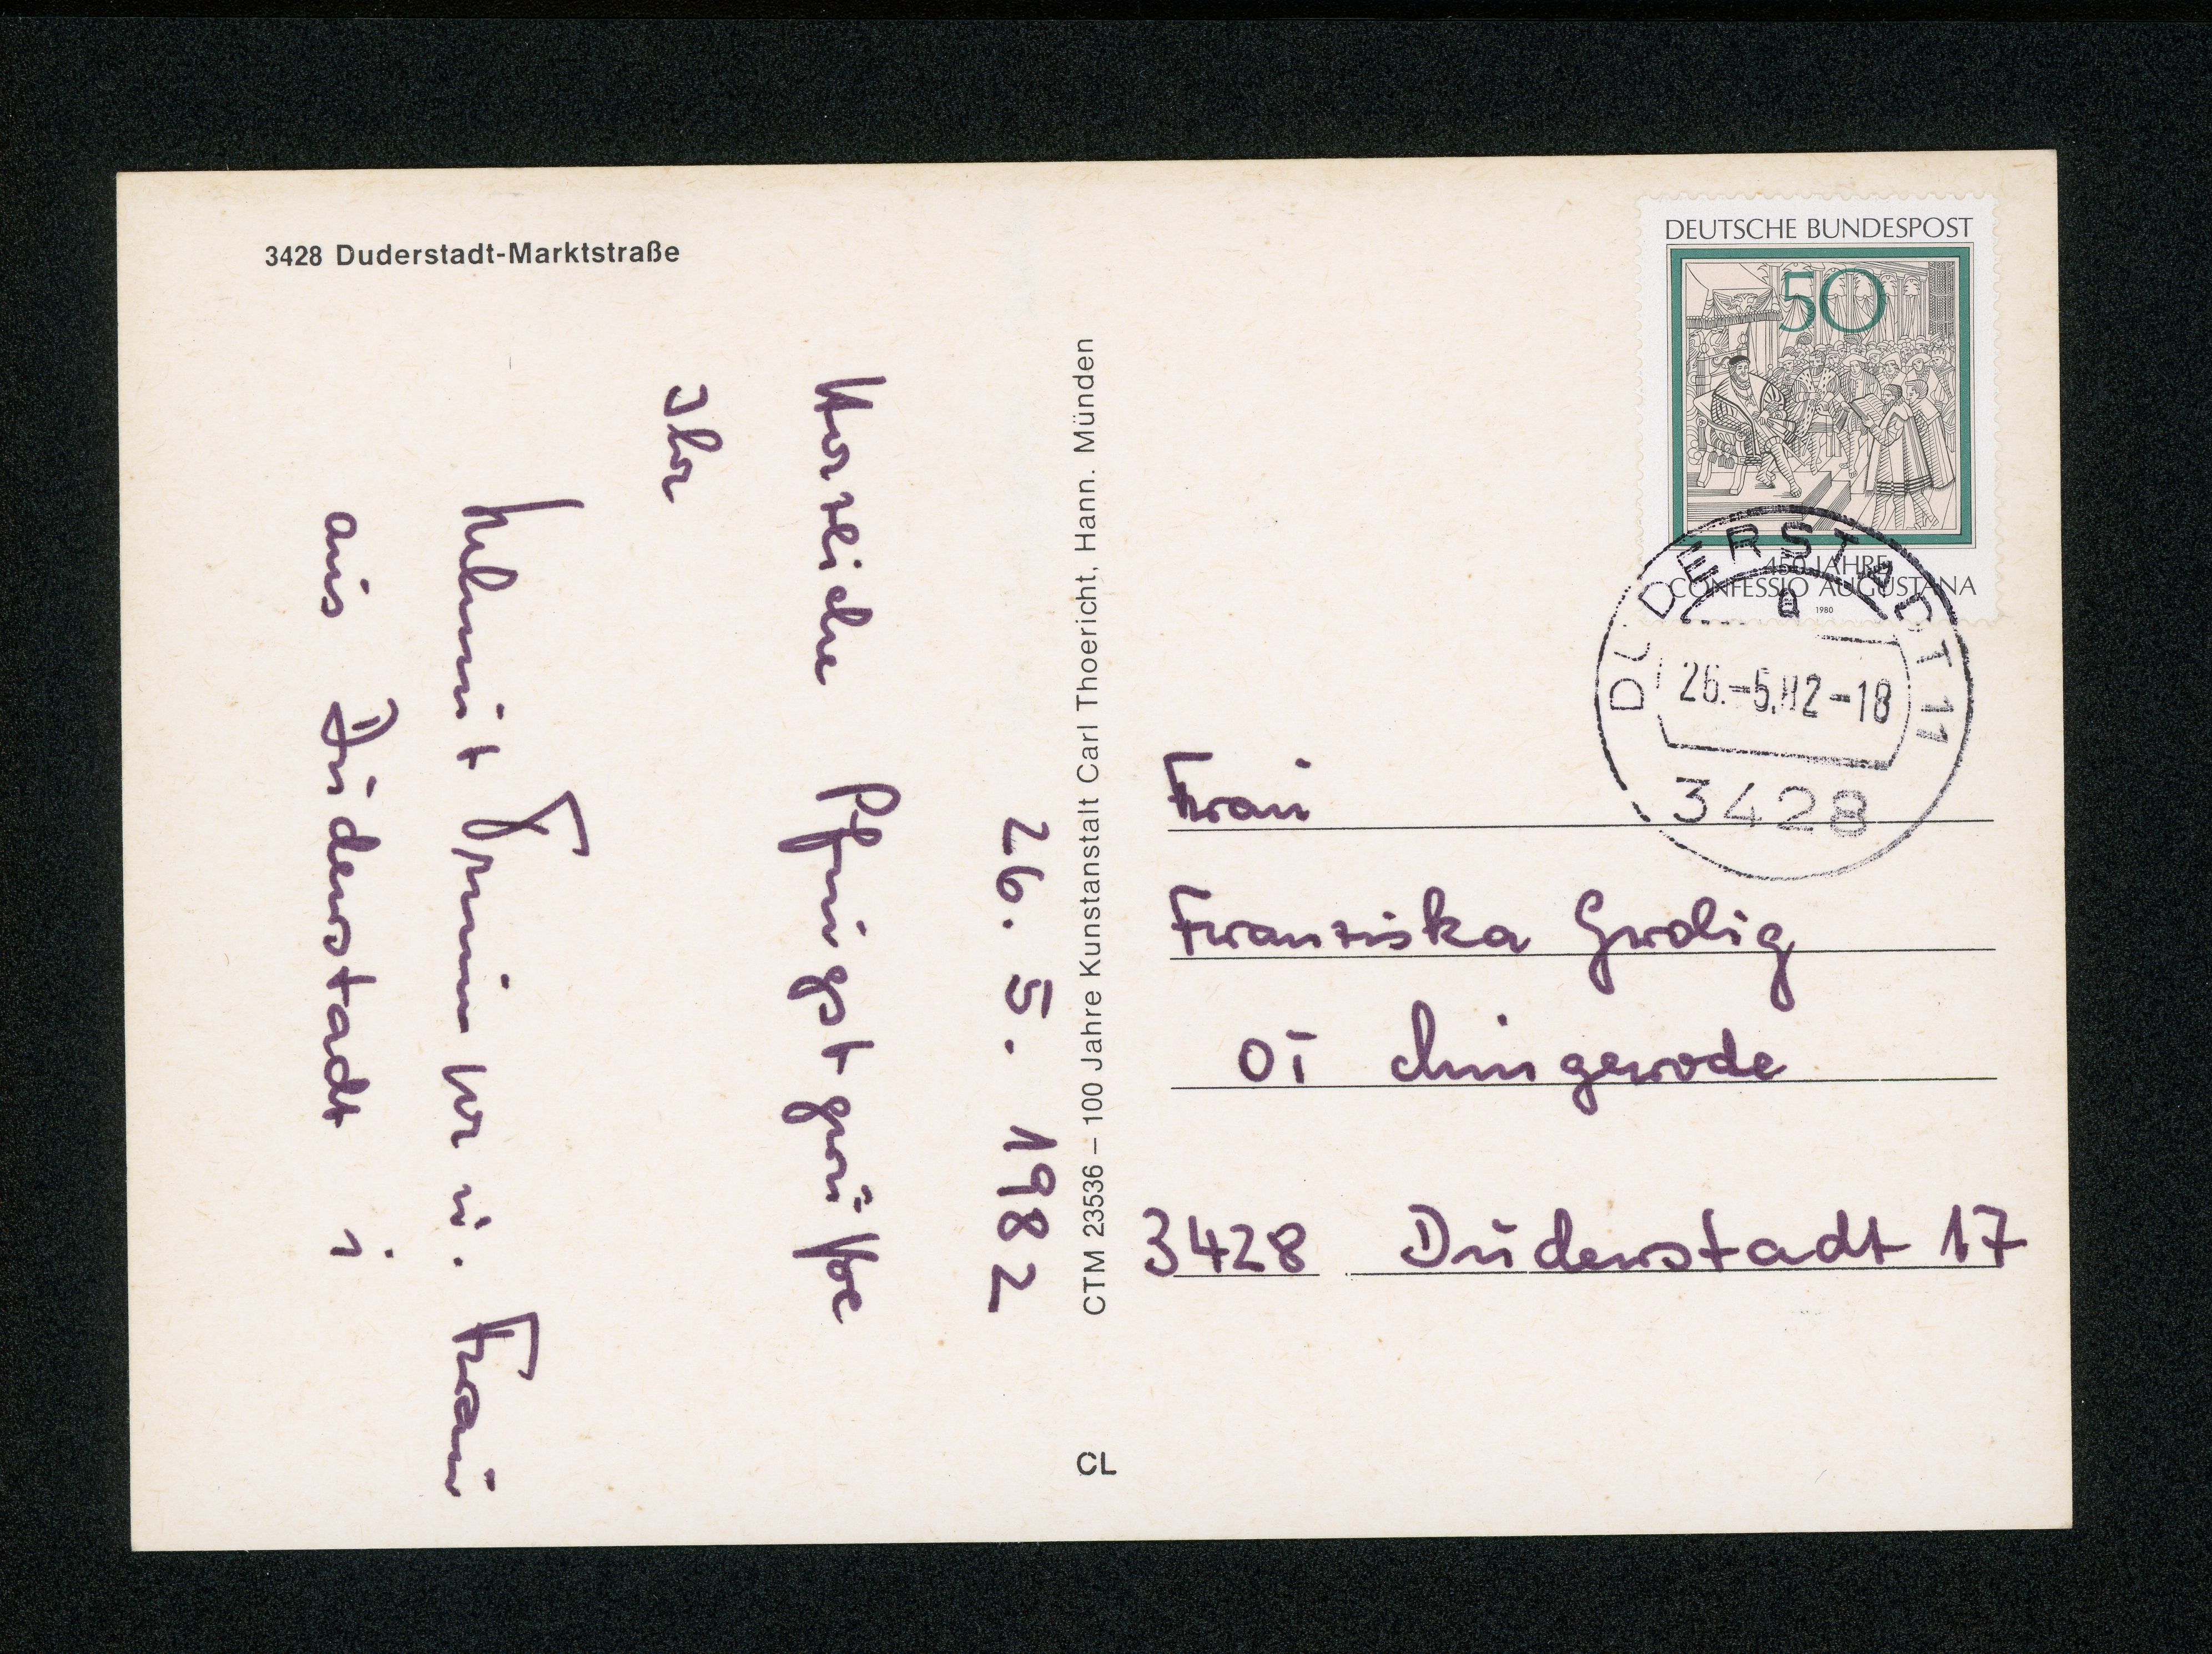 3428 Duderstadt-Marktstraße
26. 5. 1982
Herzliche Pfingstgrüße
Ihr
Helmut u. Frau
aus Duderstadt 1
CTM 23536 – 100 Jahre Kunstanstalt Carl Thoericht, Hann. Münden
CL
DEUTSCHE BUNDESPOST
50
450 JAHRE
CONFESSIO AUGUSTANA
1980
DUDERSTADT 11
a
26.-5.82-18
3428
Frau
Franziska Grolig
OT Mingerode
3428 Duderstadt 17